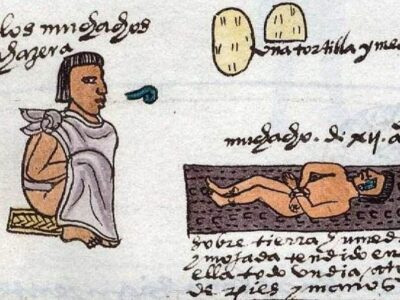 los muchachos
hazera
Una tortilla y me
muchacho. de xii. a
sobre tierra y umed
y mojada tendido en
ella todo un dia, ate
de pies y manos